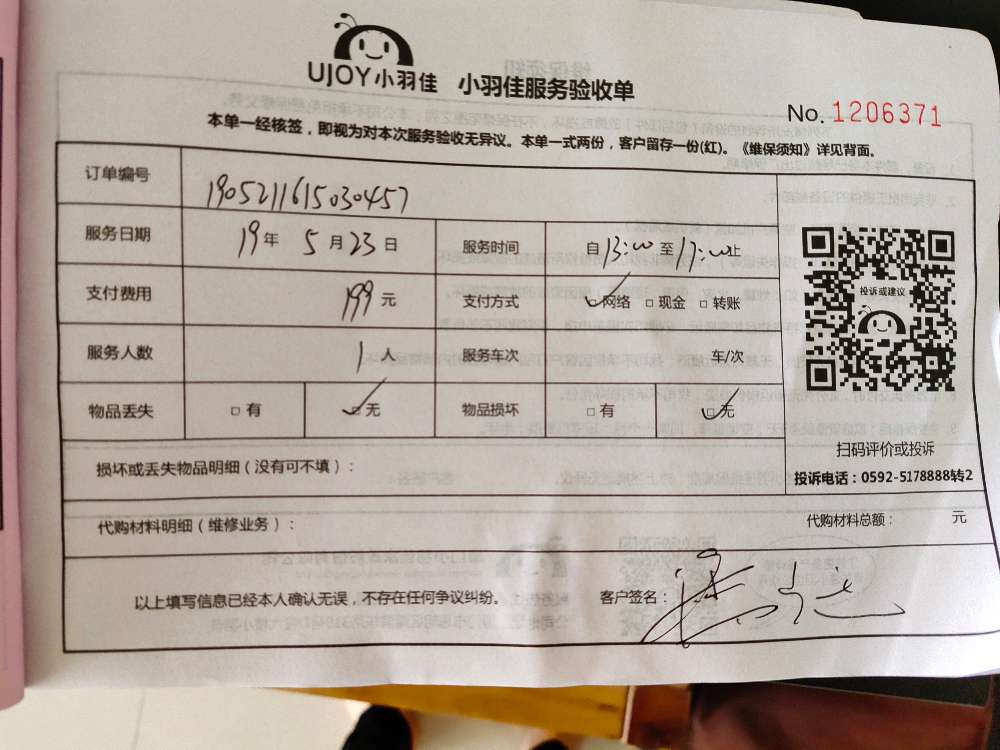 UJOY小羽佳 小羽佳服务验收单
No. 1206371
本单一经核签，即视为对本次服务验收无异议。本单一式两份，客户留存一份(红)。《维保须知》详见背面。
订单编号 1905211615030457
服务日期 19年 5月23日 服务时间 自13:00至17:00止
支付费用 199元 支付方式 网络 现金 转账
投诉或建议
服务人数 1人 服务车次 车/次
物品丢失 有 无 物品损坏 有 无
扫码评价或投诉
投诉电话：0592-5178888转2
损坏或丢失物品明细（没有可不填）：
代购材料明细（维修业务）： 代购材料总额： 元
以上填写信息已经本人确认无误，不存在任何争议纠纷。 客户签名：